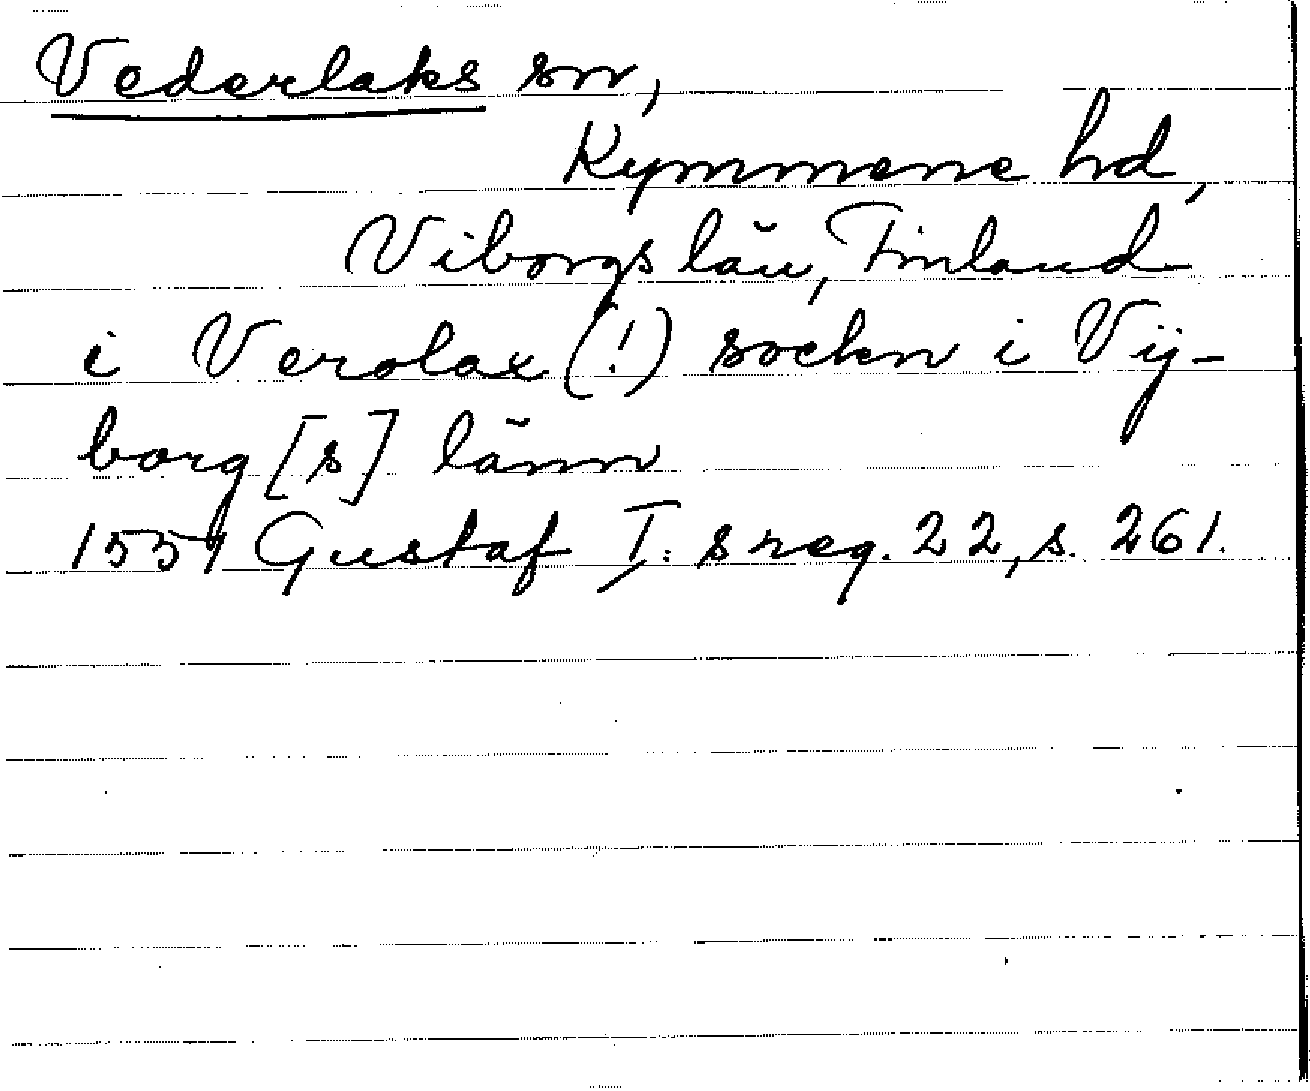 Vederlaks sn,
Kymmene hd,
Viborgs län, Finland
i Verolax (!) sockn i Vij-
borg [s] länn
1551 Gustaf I:s reg. 22, s. 261.